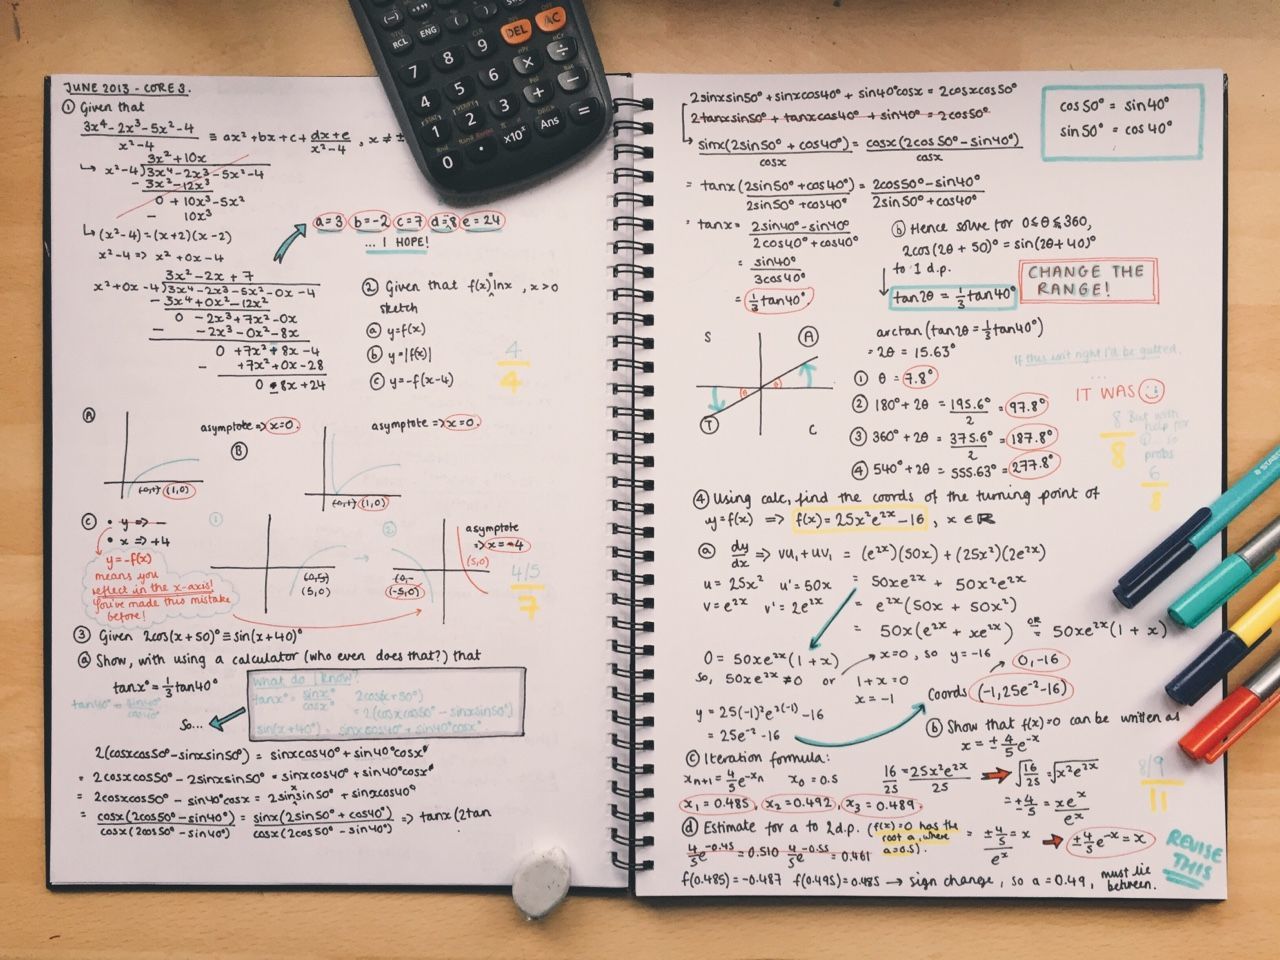 JUNE 2013 - CORE 3.
① Given that
3x⁴-2x³-5x²-4 / x²-4 ≡ ax²+bx+c+ dx+e / x²-4 , x ≠ ±
3x²+10x
x²-4 ) 3x⁴-2x³-5x²-4
- 3x²-12x³
0 + 10x³-5x²
- 10x³
a=3 b=-2 c=7 d=8 e=24
... I HOPE!
(x²-4)=(x+2)(x-2)
x²-4 => x²+0x-4
3x²-2x+7
x²+0x-4 ) 3x⁴-2x³-5x²-0x-4
- 3x⁴+0x³-12x²
0 -2x³+7x²-0x
- -2x³-0x²-8x
0 +7x²+8x-4
- +7x²+0x-28
0 8x+24
② Given that f(x) lnx , x>0
sketch
ⓐ y=f(x)
ⓑ y=|f(x)|
ⓒ y=-f(x-4)
4/4
Ⓐ
asymptote => x=0.
(1,0)
Ⓑ
asymptote => x=0.
(1,0)
ⓒ • y => —
• x => +4
y=-f(x)
means you
reflect in the x-axis!
You've made this mistake
before!
①
(5,0)
②
(-5,0)
asymptote
=> x=-4
(5,0)
4/5
7
③ Given 2cos(x+50)° ≡ sin(x+40)°
ⓐ Show, with using a calculator (who even does that?) that
tanx° = ⅓ tan40°
tan40° = sin40° / cos40°
So...
What do I know?
tanx° = sinx° / cosx° 2cos(x+50°)
= 2(cosxcos50° - sinxsin50°)
sin(x+40°) = sinxcos40° + sin40°cosx
2(cosxcos50°-sinxsin50°) = sinxcos40° + sin40°cosx°
= 2cosxcos50° - 2sinxsin50° = sinxcos40° + sin40°cosx°
= 2cosxcos50° - sin40°cosx = 2sinxsin50° + sinxcos40°
= cosx(2cos50°-sin40°) / cosx(2cos50°-sin40°) = sinx(2sin50°+cos40°) / cosx(2cos50°-sin40°) => tanx(2tan
2sinxsin50° + sinxcos40° + sin40°cosx = 2cosxcos50°
2tanxsin50° + tanxcos40° + sin40° = 2cos50°
sinx(2sin50°+cos40°) / cosx = cosx(2cos50°-sin40°) / cosx
cos50° = sin40°
sin50° = cos40°
= tanx(2sin50°+cos40°) / 2sin50°+cos40° = 2cos50°-sin40° / 2sin50°+cos40°
= tanx = 2sin40°-sin40° / 2cos40°+cos40°
= sin40° / 3cos40°
= ⅓ tan40°
ⓑ Hence solve for 0≤θ≤360,
2cos(2θ+50)° = sin(2θ+40)°
to 1 d.p.
tan2θ = ⅓ tan40°
CHANGE THE
RANGE!
S Ⓐ
Ⓣ C
arctan(tan2θ = ⅓ tan40°)
= 2θ = 15.63°
If this isn't right I'll be gutted.
...
IT WAS
① θ = 7.8°
② 180°+2θ = 195.6° / 2 = 97.8°
③ 360°+2θ = 375.6° / 2 = 187.8°
④ 540°+2θ = 555.63° = 277.8°
8/8
But with
help for
so
probs
6/8
④ Using calc, find the coords of the turning point of
y=f(x) => f(x) = 25x²e²ˣ-16 , x∈ℝ
ⓐ dy/dx => vu₁+uv₁ = (e²ˣ)(50x)+(25x²)(2e²ˣ)
u = 25x² u' = 50x = 50xe²ˣ + 50x²e²ˣ
v = e²ˣ v' = 2e²ˣ = e²ˣ(50x+50x²)
= 50x(e²ˣ+xe²ˣ) OR = 50xe²ˣ(1+x)
0 = 50xe²ˣ(1+x) x=0, so y=-16 0,-16
So, 50xe²ˣ ≠ 0 or 1+x=0
x=-1
Coords (-1,25e⁻²-16)
y = 25(-1)²e²⁽⁻¹⁾-16
= 25e⁻²-16
ⓑ Show that f(x)=0 can be written as
x = ±⅘e⁻ˣ
16/25 = 25x²e²ˣ/25 √16/25 = √x²e²ˣ
= ±4/5 = xeˣ/eˣ
= ±⅘/eˣ = x ±⅘e⁻ˣ = x
8/9
11
ⓒ Iteration formula:
xₙ₊₁ = ⅘e⁻ˣₙ x₀ = 0.5
x₁ = 0.485, x₂ = 0.492, x₃ = 0.489.
ⓓ Estimate for a to 2d.p. (f(x)=0 has the
root a, where
a=0.5).
⅘e⁻⁰·⁴⁵ = 0.510 ⅘e⁻⁰·⁵⁵ = 0.461
f(0.485) = -0.487 f(0.495) = 0.485 → sign change, so a = 0.49, must lie
between.
REVISE
THIS
RCL
ENG
(
)
DEL
AC
7
8
9
×
÷
4
5
6
+
−
1
2
3
Ans
=
0
•
×10ˣ